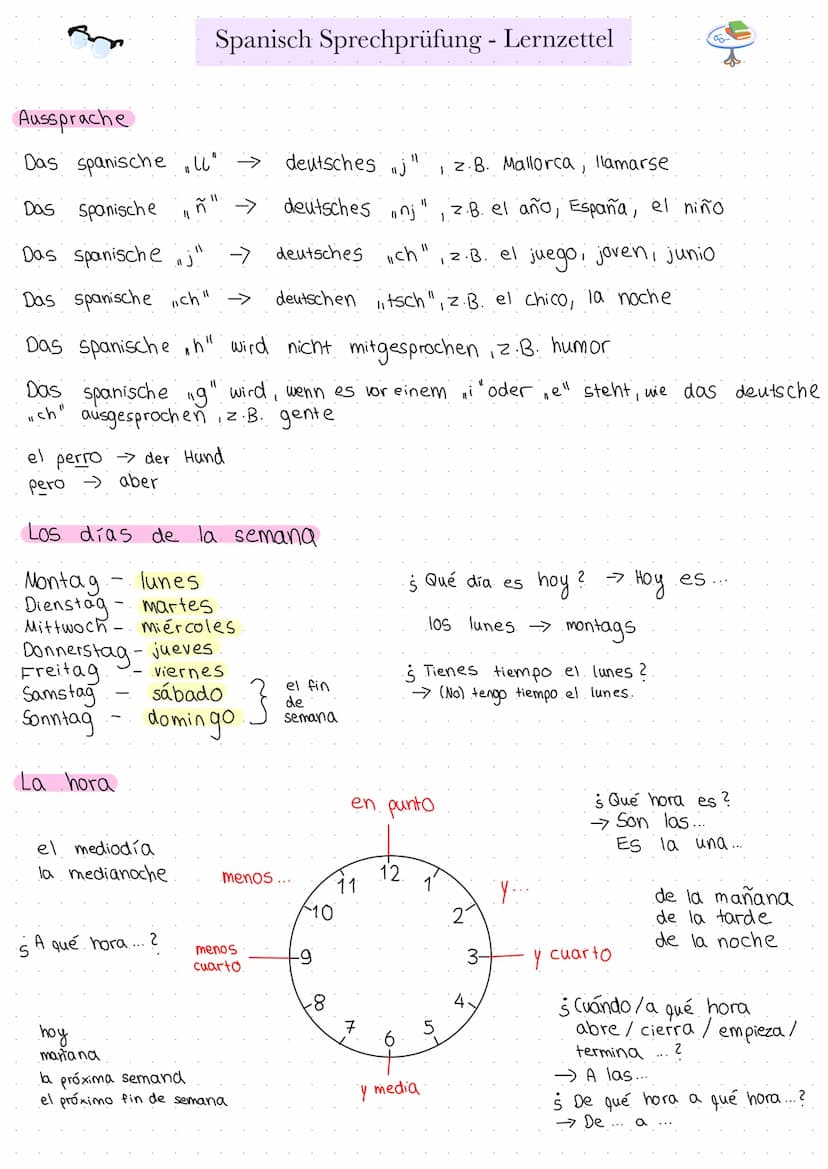 Spanisch Sprechprüfung - Lernzettel
Aussprache
Das spanische „ll" → deutsches „j", z.B. Mallorca, llamarse
Das spanische „ñ" → deutsches „nj", z.B. el año, España, el niño
Das spanische „j" → deutsches „ch", z.B. el juego, joven, junio
Das spanische „ch" → deutschen „tsch", z.B. el chico, la noche
Das spanische „h" wird nicht mitgesprochen, z.B. humor
Das spanische „g" wird, wenn es vor einem „i" oder „e" steht, wie das deutsche
„ch" ausgesprochen, z.B. gente
el perro → der Hund
pero → aber
Los días de la semana
Montag - lunes
Dienstag - martes
Mittwoch - miércoles
Donnerstag - jueves
Freitag - viernes
Samstag - sábado
Sonntag - domingo
el fin
de
semana
¿Qué día es hoy? → Hoy es...
los lunes → montags
¿Tienes tiempo el lunes?
→ (No) tengo tiempo el lunes.
La hora
el mediodía
la medianoche
¿A qué hora...?
hoy
mañana
la próxima semana
el próximo fin de semana
en punto
menos...
menos
cuarto
y...
y cuarto
y media
12
1
2
3
4
5
6
7
8
9
10
11
¿Qué hora es?
→ Son las...
Es la una...
de la mañana
de la tarde
de la noche
¿Cuándo/a qué hora
abre / cierra / empieza /
termina ...?
→ A las...
¿De qué hora a qué hora...?
→ De ... a ...